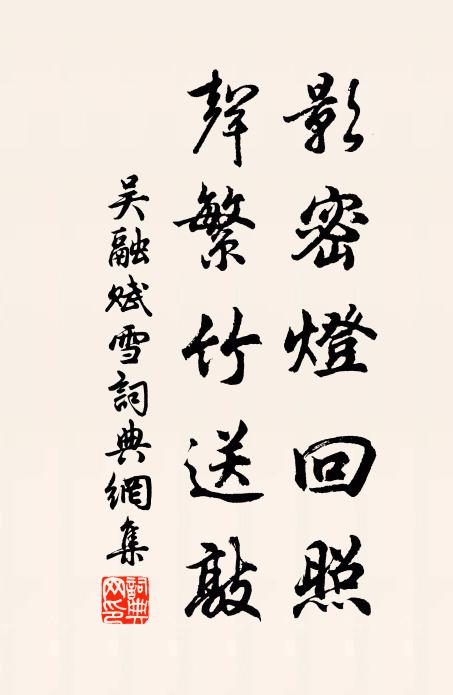 影密燈回照
聲繁竹送敲
吴融賦雪詞典網集
詞典網印